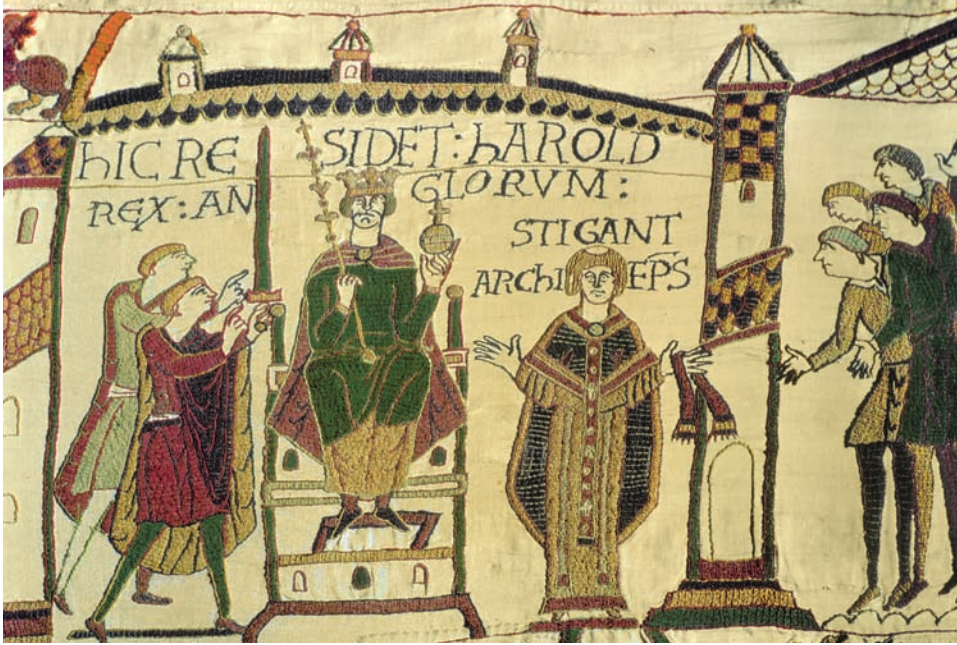 hIC RE SIDET: hAROLD
REX: AN GLORVM:
STIGANT
ARCHI EPS